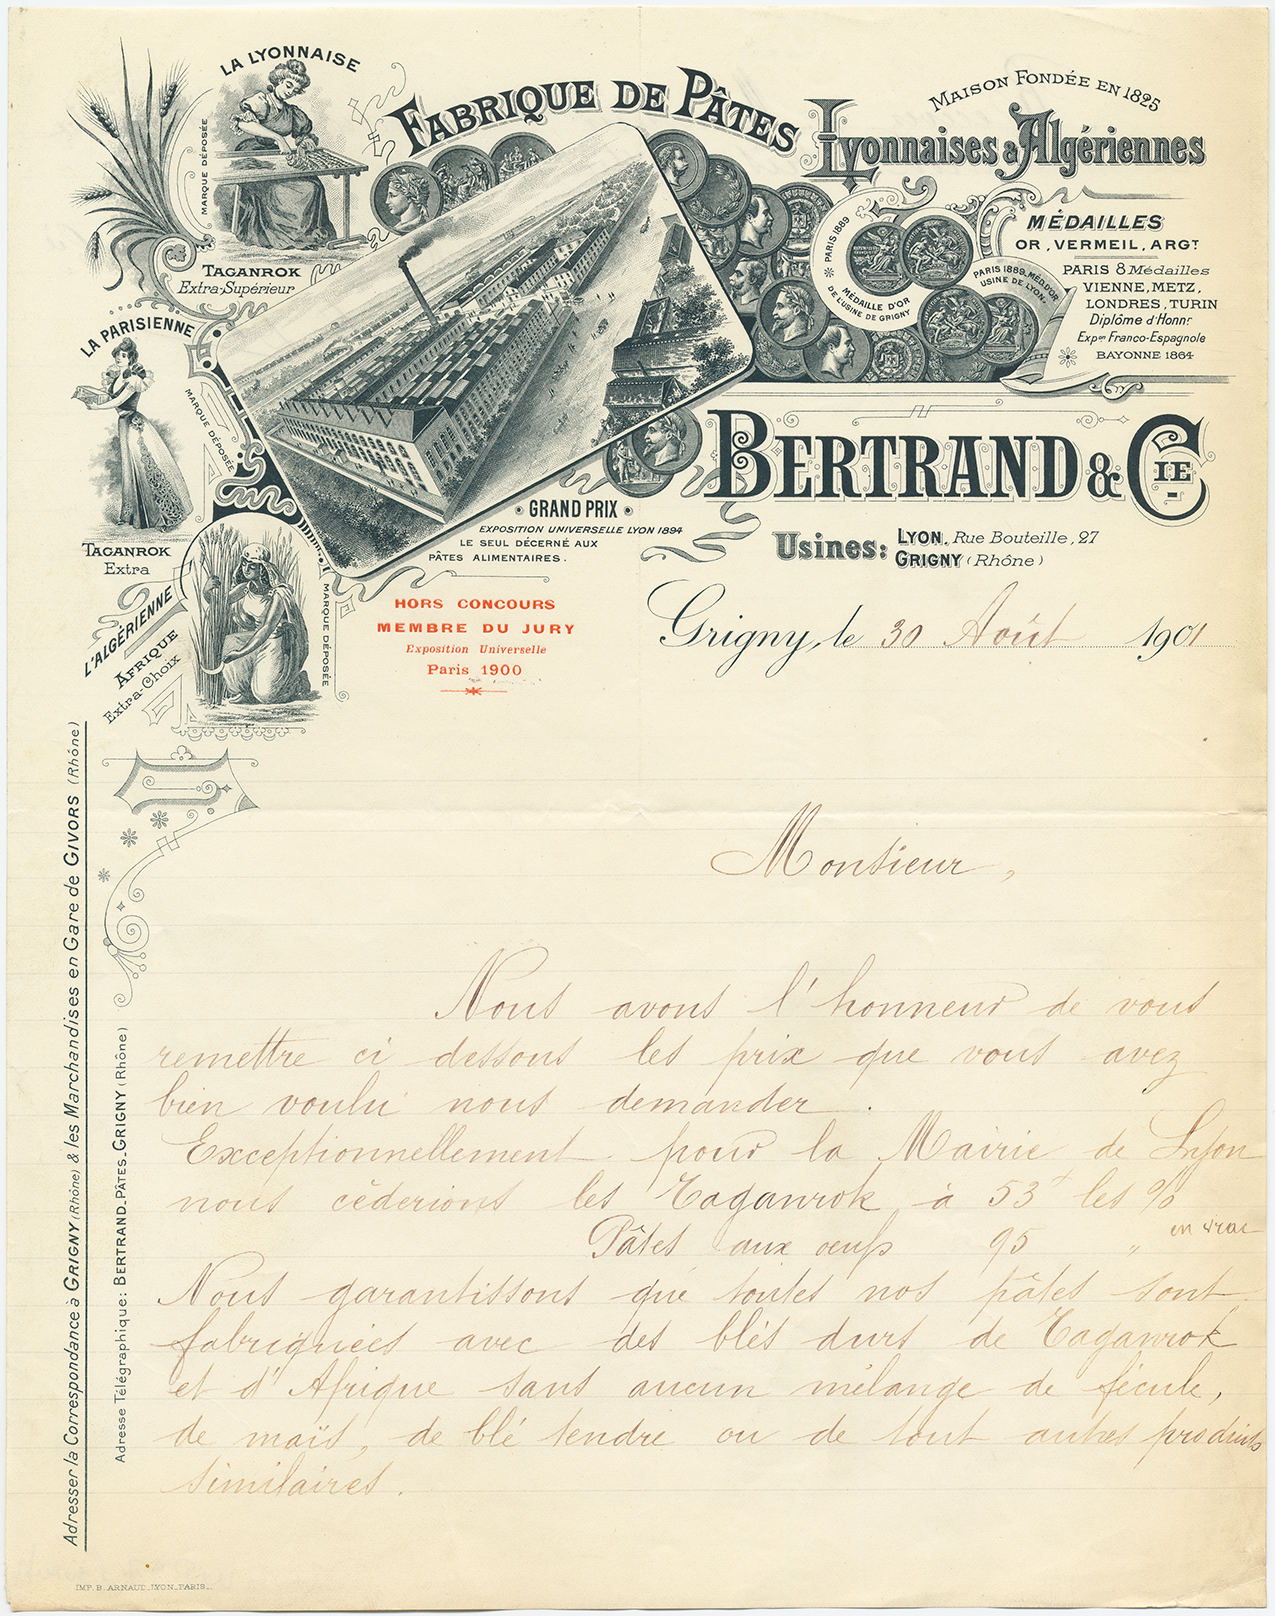 LA LYONNAISE
MARQUE DÉPOSÉE
TAGANROK
Extra-Supérieur
LA PARISIENNE
MARQUE DÉPOSÉE
TAGANROK
Extra
L'ALGÉRIENNE
AFRIQUE
Extra-Choix
MARQUE DÉPOSÉE
FABRIQUE DE PÂTES
MAISON FONDÉE EN 1825
Lyonnaises & Algériennes
PARIS 1889
MÉDAILLE D'OR
DE L'USINE DE GRIGNY
PARIS 1889, MÉD. D'OR
USINE DE LYON
MÉDAILLES
OR, VERMEIL, ARGT
PARIS 8 Médailles
VIENNE, METZ,
LONDRES, TURIN
Diplôme d'Honnr
Expon Franco-Espagnole
BAYONNE 1864
BERTRAND & CIE
GRAND PRIX
EXPOSITION UNIVERSELLE LYON 1894
LE SEUL DÉCERNÉ AUX
PÂTES ALIMENTAIRES.
Usines: LYON, Rue Bouteille, 27
GRIGNY (Rhône)
HORS CONCOURS
MEMBRE DU JURY
Exposition Universelle
Paris 1900
Grigny, le 30 Août 1901
Monsieur,
Nous avons l'honneur de vous
remettre ci dessous les prix que vous avez
bien voulu nous demander.
Exceptionnellement pour la Mairie de Lyon
nous cèderions les Taganrok à 53f les %
Pâtes aux oeufs 95 " en vrac
Nous garantissons que toutes nos pâtes sont
fabriquées avec des blés durs de Taganrok
et d'Afrique sans aucun mélange de fécule,
de maïs, de blé tendre ou de tout autres produits
similaires.
Adresser la Correspondance à GRIGNY (Rhône) & les Marchandises en Gare de GIVORS (Rhône)
Adresse Télégraphique: BERTRAND_PÂTES_GRIGNY (Rhône)
IMP. B. ARNAUD_LYON_PARIS_